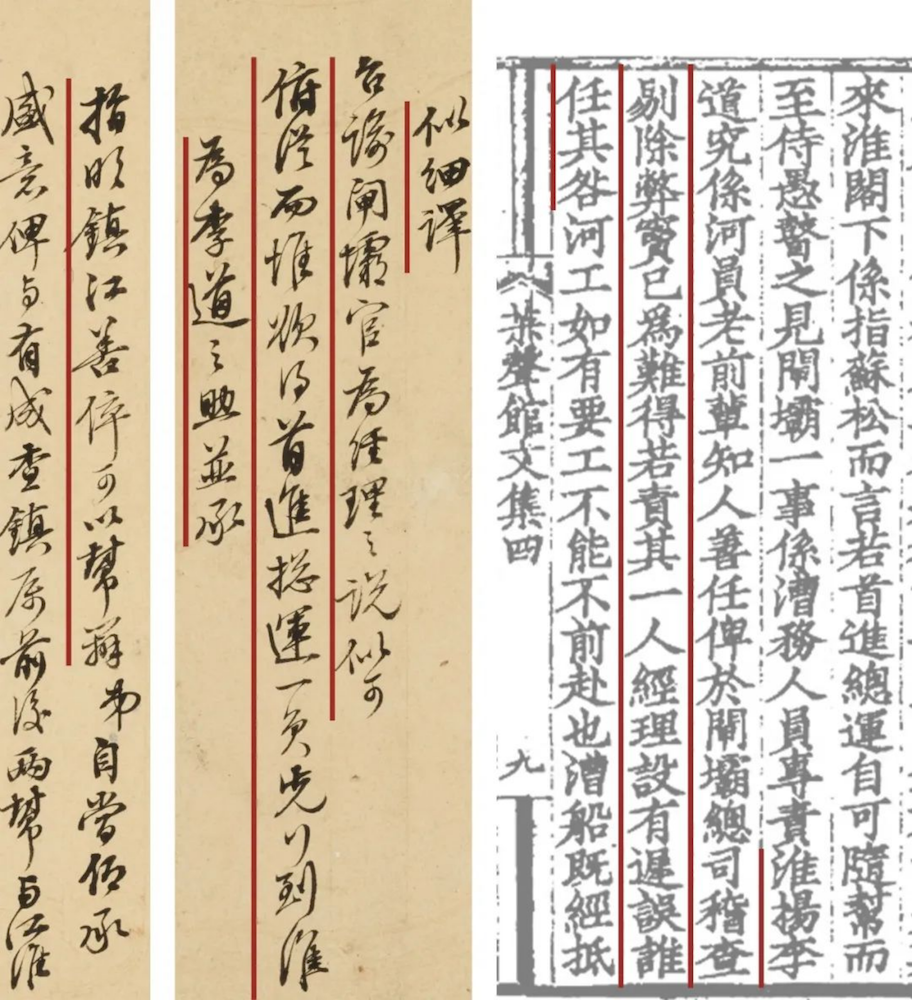 來淮閣下係指蘇松而言若首進總運自可隨幫而
至侍愚瞽之見閘壩一事係漕務人員專責淮揚李
道究係河員老前輩知人善任俾於閘壩總司稽查
剔除弊竇已爲難得若責其一人經理設有遲誤誰
任其咎河工如有要工不能不前赴也漕船既經抵
蕉聲館文集四
九
似細譯
台諭閘壩官為經理之説似可
俯從而惟欲得首進揔運一員先行到淮
為李道之助並承
指明鎮江善倅可以幫辦弟自當仰承
盛意俾与有成查鎮屬前後兩幫与江淮